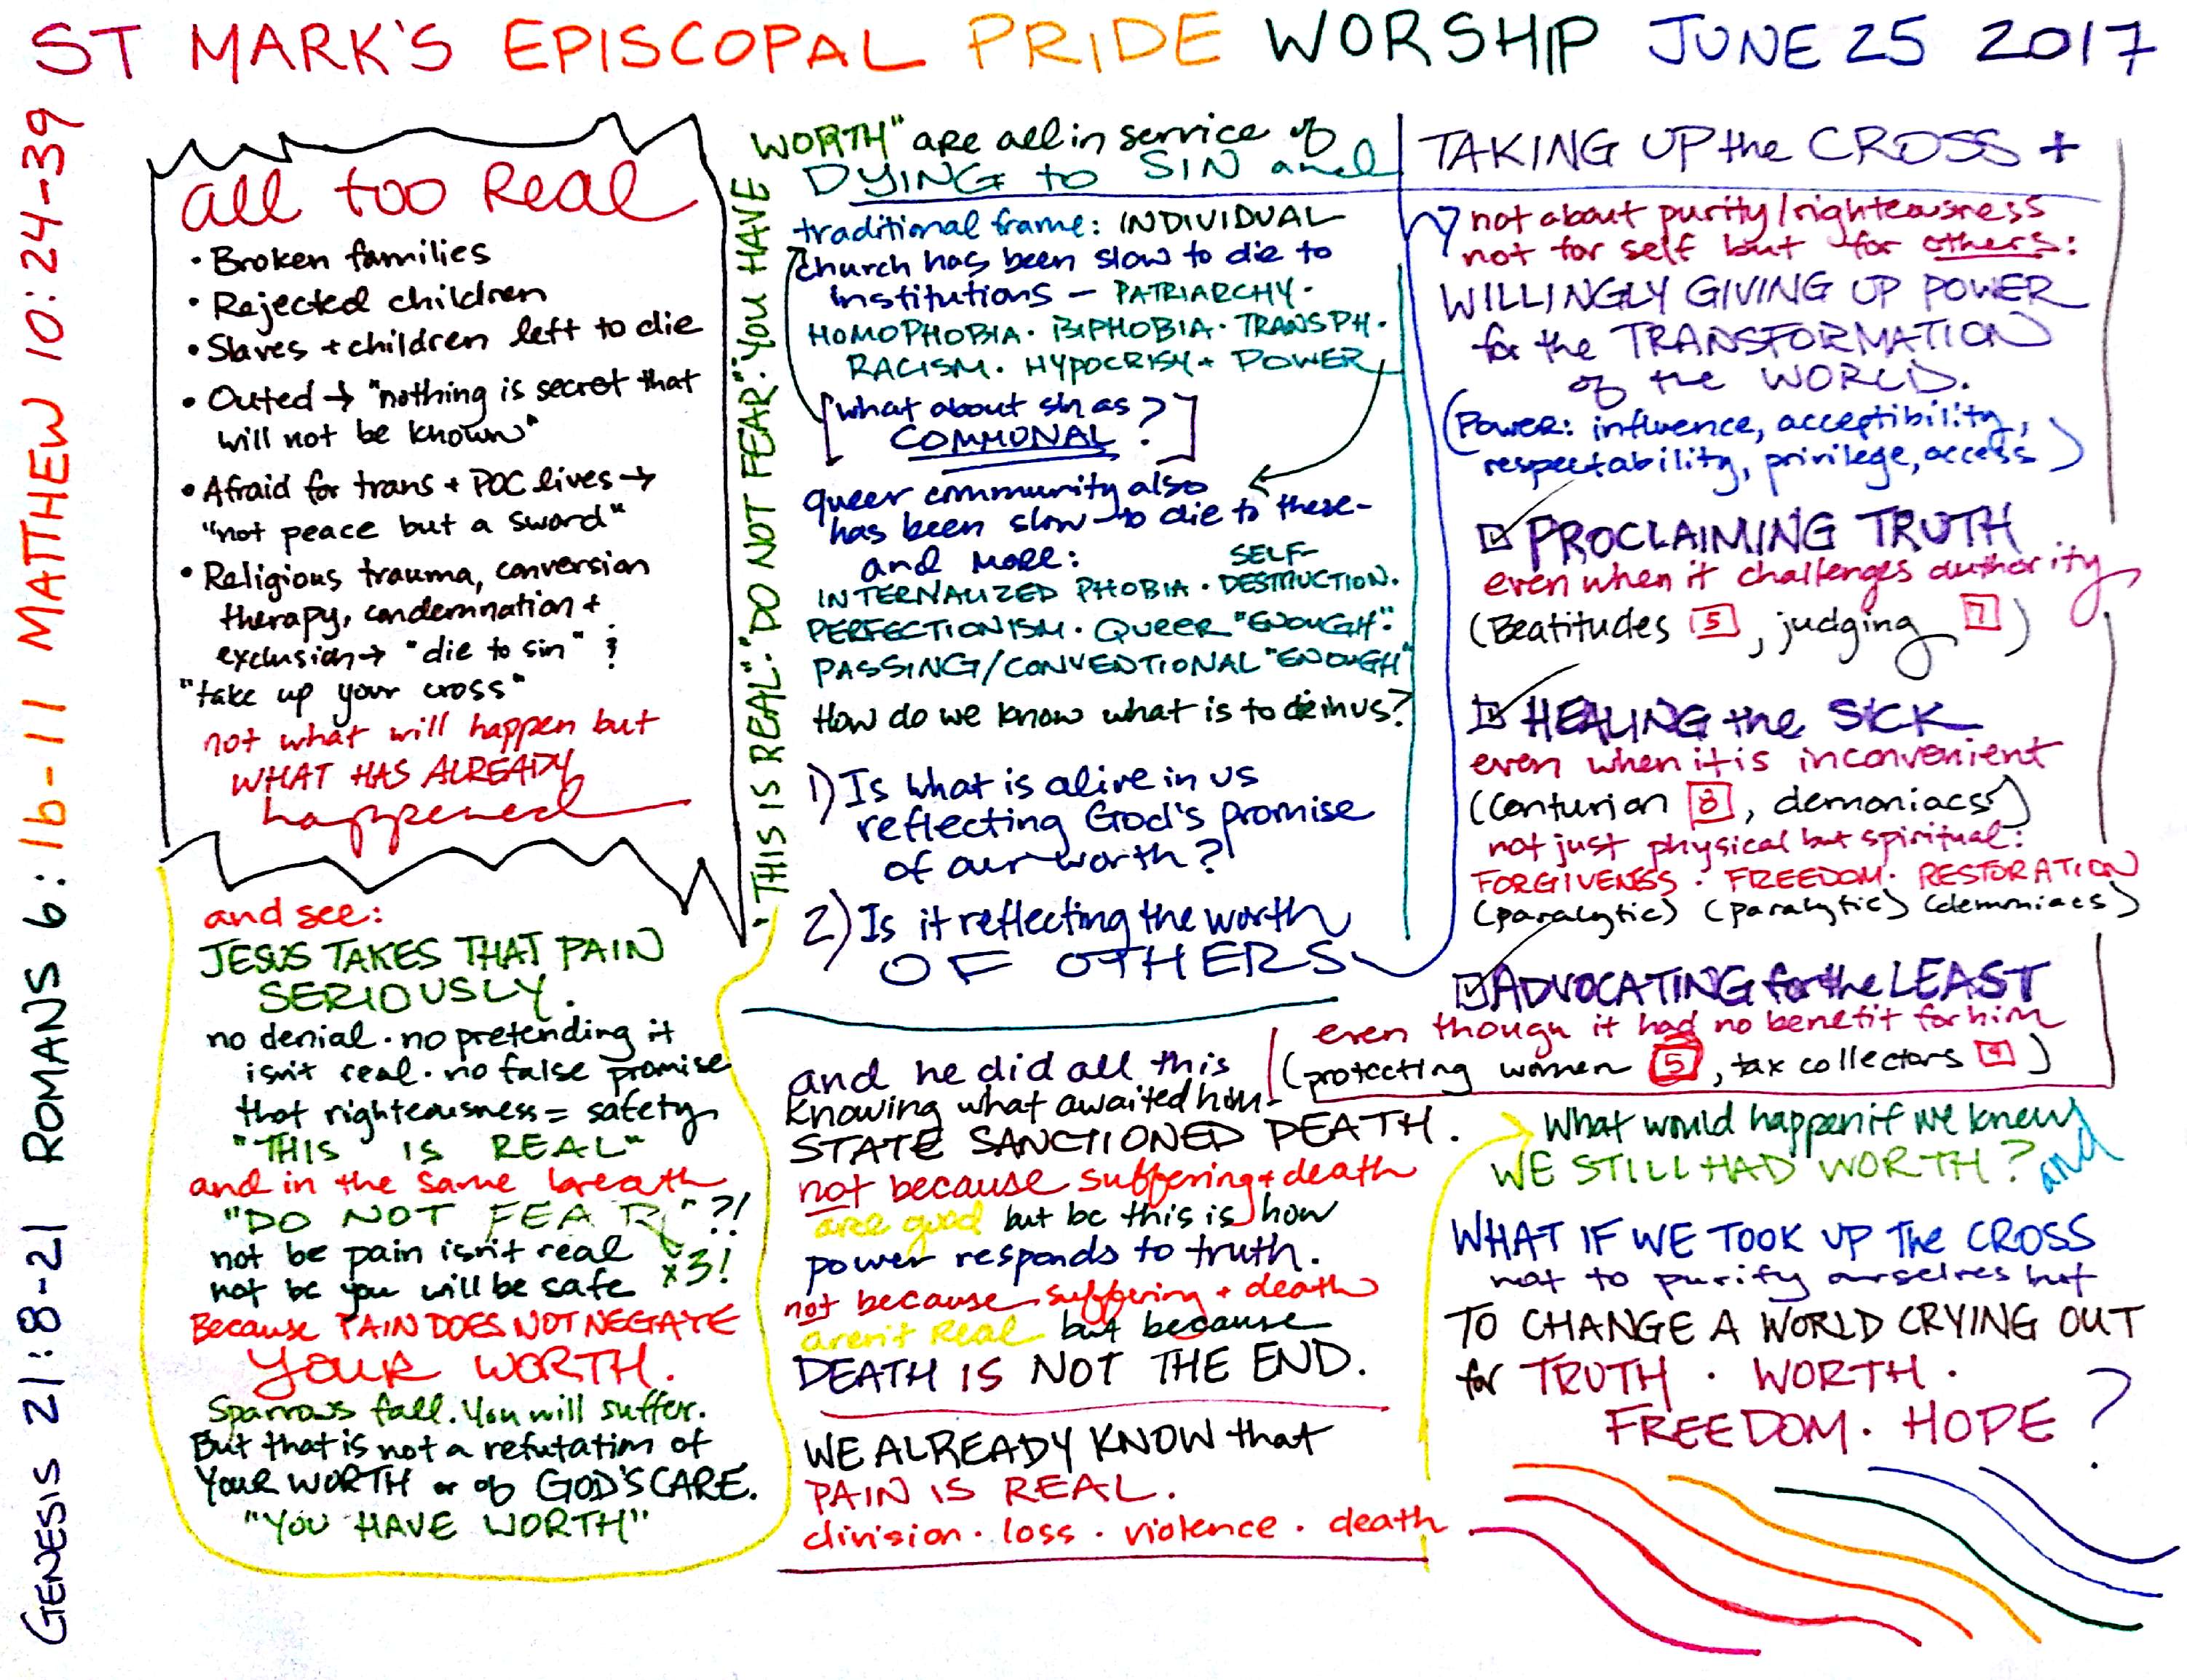 ST MARK'S EPISCOPAL PRIDE WORSHIP JUNE 25 2017
GENESIS 21:8-21 ROMANS 6:1b-11 MATTHEW 10:24-39
all too Real
• Broken families
• Rejected children
• Slaves + children left to die
• Outed → "nothing is secret that
will not be known"
• Afraid for trans + POC lives →
"not peace but a sword"
• Religious trauma, conversion
therapy, condemnation +
exclusion → "die to sin" ?
"take up your cross"
not what will happen but
WHAT HAS ALREADY
happened
and see:
JESUS TAKES THAT PAIN
SERIOUSLY.
no denial · no pretending it
isn't real · no false promise
that righteousness = safety
"THIS IS REAL"
and in the same breath
"DO NOT FEAR"?!
x3!
not bc pain isn't real
not bc you will be safe
Because PAIN DOES NOT NEGATE
YOUR WORTH.
Sparrows fall. You will suffer.
But that is not a refutation of
YOUR WORTH or of GOD'S CARE.
"YOU HAVE WORTH"
"THIS IS REAL". "DO NOT FEAR". "YOU HAVE
WORTH" are all in service of
DYING to SIN and
traditional frame: INDIVIDUAL
church has been slow to die to
institutions — PATRIARCHY ·
HOMOPHOBIA · BIPHOBIA · TRANSPH ·
RACISM · HYPOCRISY + POWER
[what about sin as ?]
COMMUNAL ?
queer community also
has been slow to die to these -
and MORE:
INTERNALIZED PHOBIA · SELF-DESTRUCTION.
PERFECTIONISM · QUEER "ENOUGH".
PASSING/CONVENTIONAL "ENOUGH"
How do we know what is to die in us?
1) Is what is alive in us
reflecting God's promise
of our worth?
2) Is it reflecting the worth
OF OTHERS
TAKING UP the CROSS +
not about purity/righteousness
not for self but for others:
WILLINGLY GIVING UP POWER
for the TRANSFORMATION
of the WORLD.
(Power: influence, acceptibility,
respectability, privilege, access)
PROCLAIMING TRUTH
even when it challenges authority
(Beatitudes 5, judging 7)
HEALING the SICK
even when it is inconvenient
(Centurion 8, demoniacs)
not just physical but spiritual:
FORGIVENESS · FREEDOM · RESTORATION
(paralytic) (paralytic) (demoniacs)
ADVOCATING for the LEAST
even though it had no benefit for him
(protecting women 5, tax collectors 9)
and he did all this
knowing what awaited him -
STATE SANCTIONED DEATH.
not because suffering + death
are good but bc this is how
power responds to truth.
not because suffering + death
aren't Real but because
DEATH IS NOT THE END.
WE ALREADY KNOW that
PAIN IS REAL.
division · loss · violence · death
What would happen if we knew
WE STILL HAD WORTH? and
WHAT IF WE TOOK UP THE CROSS
not to purify ourselves but
TO CHANGE A WORLD CRYING OUT
for TRUTH · WORTH ·
FREEDOM · HOPE?